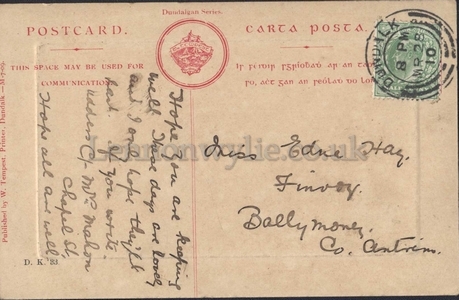 Dundalgan Series.
POSTCARD.
CARTA POSTA.
THIS SPACE MAY BE USED FOR
COMMUNICATION
Hope you are keeping
well. These days are lovely
and I only hope they'll
last. If you write
address C/o Mrs Mahon
Chapel St,
Hope all are well
Miss Edne Hay.
Finvoy.
Ballymoney.
Co. Antrim.
DUNDALK
8 PM
MR 28
10
D. K. 83
Published by W. Tempest, Printer, Dundalk
Lennonwylie.co.uk